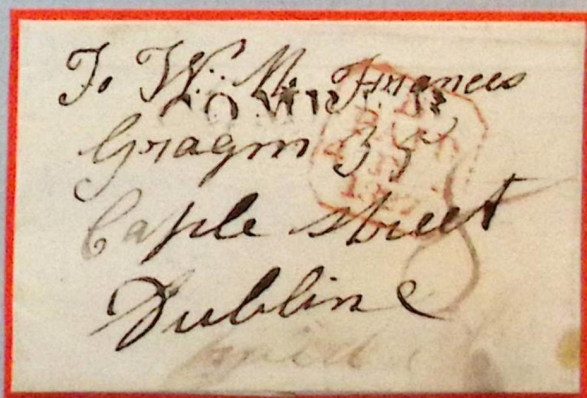 To W. M. Frances
Gragm 35
Caple street
Dubline
paid